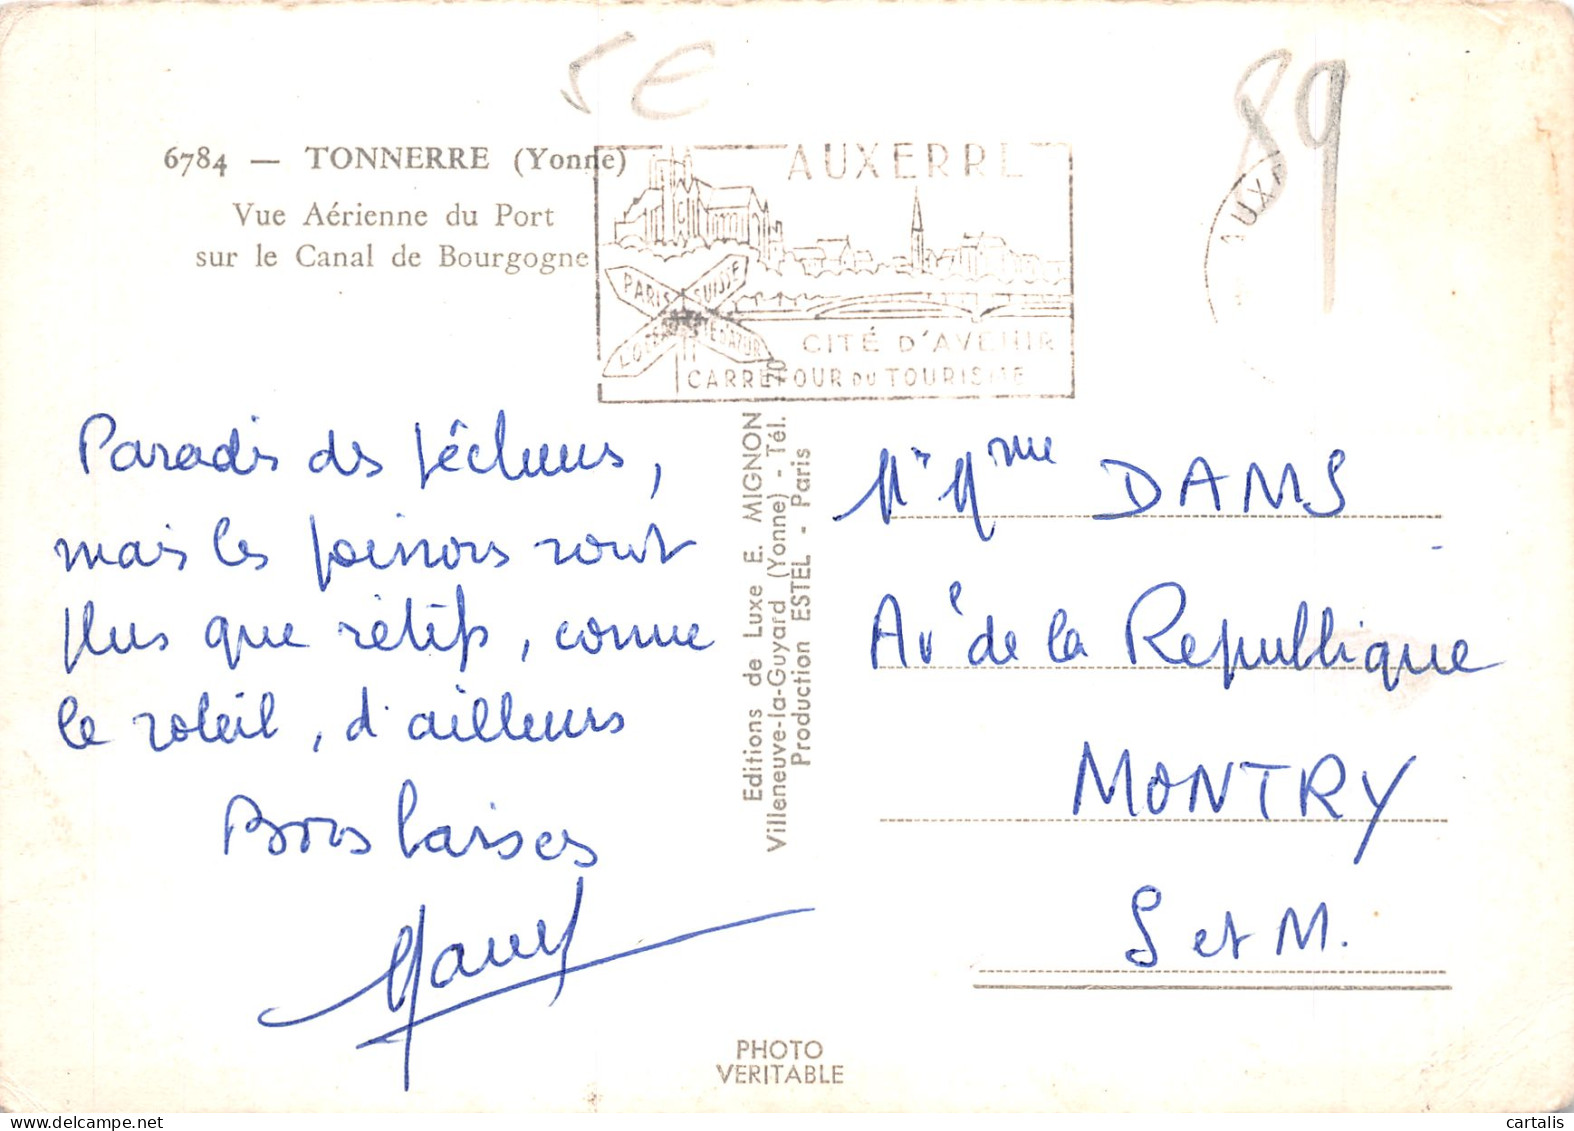 5€
89
6784 — TONNERRE (Yonne)
Vue Aérienne du Port
sur le Canal de Bourgogne
AUXERRE
PARIS
SUISSE
CITÉ D'AVENIR
CARREFOUR DU TOURISME
AUXE
Paradis des pêcheurs,
mais les poissons sont
plus que rétifs, comme
le soleil, d'ailleurs
Bons baisers
Editions de Luxe E. MIGNON
Villeneuve-la-Guyard (Yonne) - Tél. 70
Production ESTEL - Paris
Mr Mme DAMS
Av de la Republique
MONTRY
S et M.
PHOTO
VERITABLE
cartalis